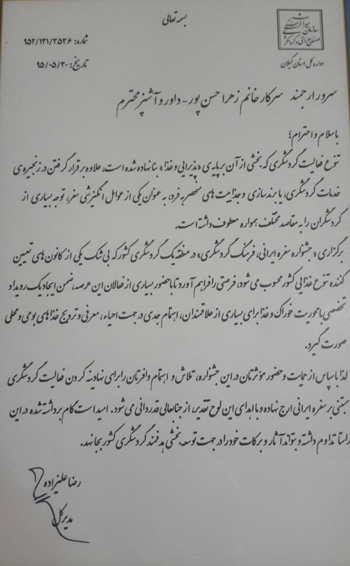 بسمه تعالی
شماره: ۹۵۲/۱۳۱/۲۵۲۶
تاریخ: ۹۵/۰۵/۲۰
اداره کل استان گیلان
سرور ارجمند سرکار خانم زهرا حسن پور - داور و آشپز محترم
با سلام و احترام؛
تنوع فعالیت گردشگری که بخشی از آن بر پایه ی «پذیرایی و غذا» بنا نهاده شده است، علاوه بر قرار گرفتن در زنجیره ی
خدمات گردشگری، با بسندسازی و جذابیت های منحصر به فرد، به عنوان یکی از عوامل انگیزشی سفر، توجه بسیاری از
گردشگران را به مقاصد مختلف همواره معطوف داشته است.
برگزاری «جشنواره سفره ایرانی، فرهنگ گردشگری» در منطقه یک گردشگری کشور که بی شک یکی از کانون های تعیین
کننده تنوع غذایی کشور محسوب می شود، فرصتی را فراهم آورد تا با حضور بسیاری از فعالان این عرصه، ضمن ایجاد یک رویداد
تخصصی با محوریت خوراک و غذا برای بسیاری از علاقمندان، اهتمام جدی در جهت احیاء، معرفی و ترویج غذاهای بومی و محلی
صورت گیرد.
لذا با سپاس از حمایت و حضور مؤثرتان در این جشنواره، تلاش و اهتمام وافرتان را برای نهادینه کردن فعالیت گردشگری
مبتنی بر سفره ایرانی ارج نهاده و با اهدای این لوح تقدیر، از جنابعالی قدردانی می شود. امید است گام برداشته شده در این
راستا تداوم داشته و بتواند آثار و برکات خود را در جهت توسعه بخشی هدفمند گردشگری کشور بجا نهد.
رضا علیزاده
مدیر کل